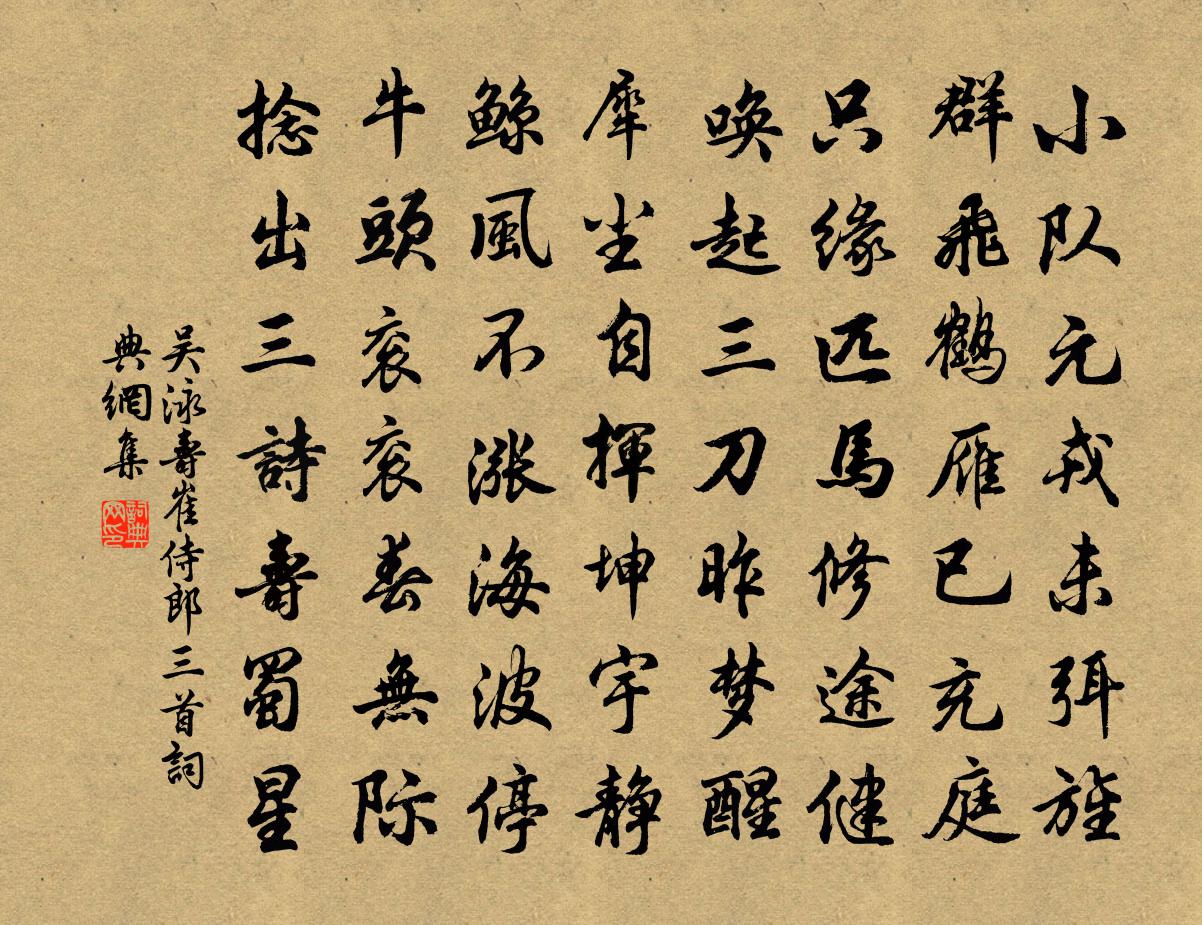 小队元戎未弭旌
群飛鶴雁已充庭
只缘匹馬修途健
唤起三刀昨梦醒
犀尘自揮坤宇静
鲸風不漲海波停
牛頭衮衮春無际
捻出三詩壽蜀星
吴泳壽崔侍郎三首詞
典網集
詞典网印